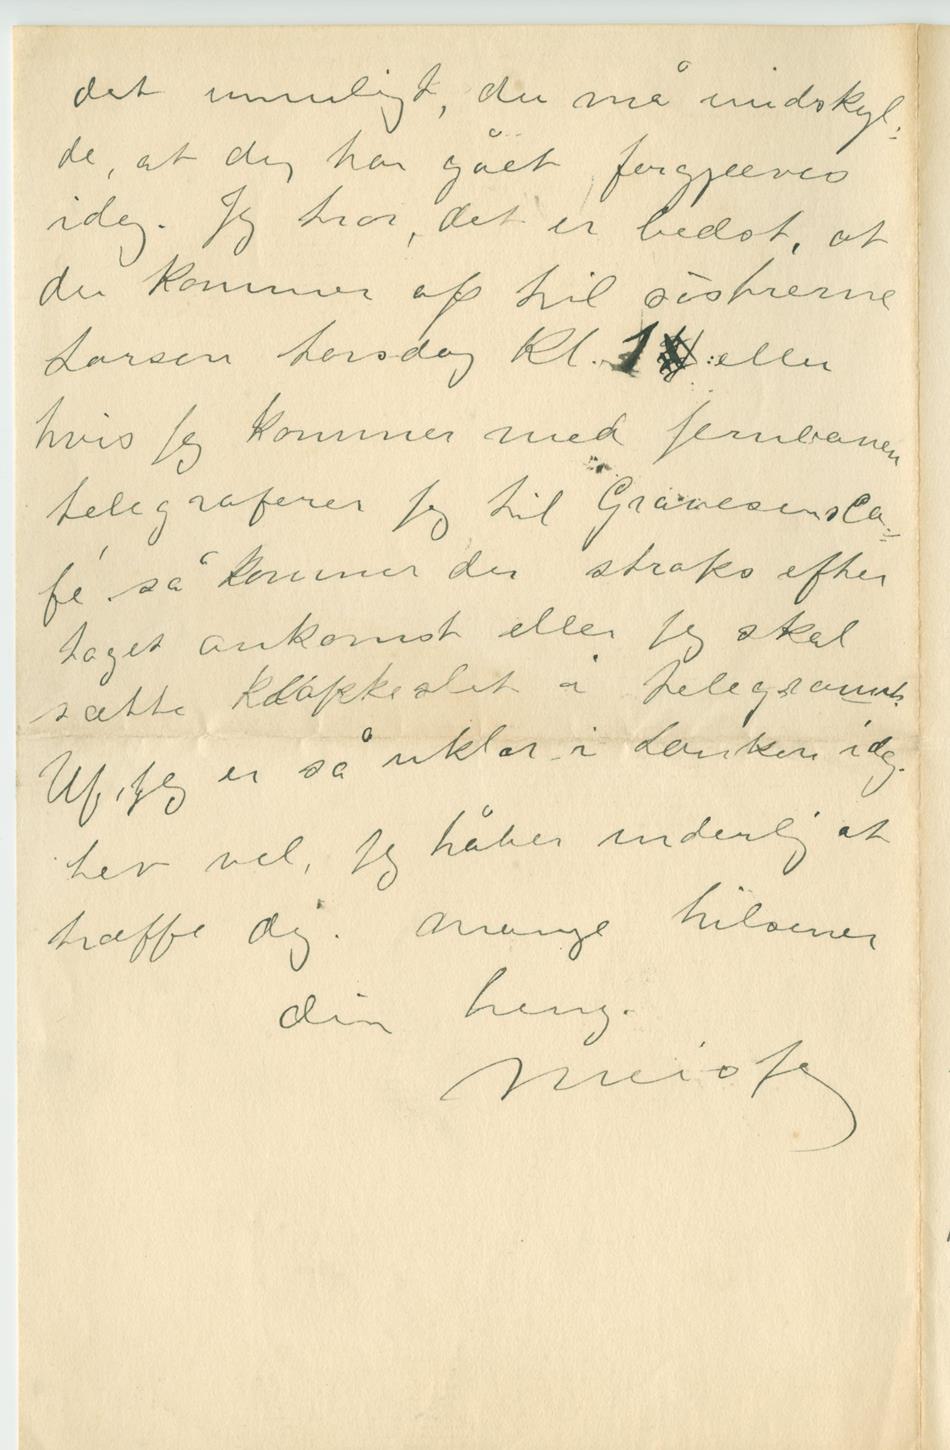 det umuligt, du må undskyl:
de, at dig har gået forgjæves
idag. Jeg tror, det er bedst, at
du kommer op til søstrerne
Larsen torsdag Kl. 1 eller
hvis jeg kommer med jernbanen
telegraferer jeg til Gravesens Ca=
fé så kommer du straks efter
toget ankomst eller jeg skal
sætte klokkeslet i telegramt.
Uf, jeg er så uklar i tanken idag.
Lev vel, jeg håber inderlig at
træffe dig. mange hilsener
din heng.